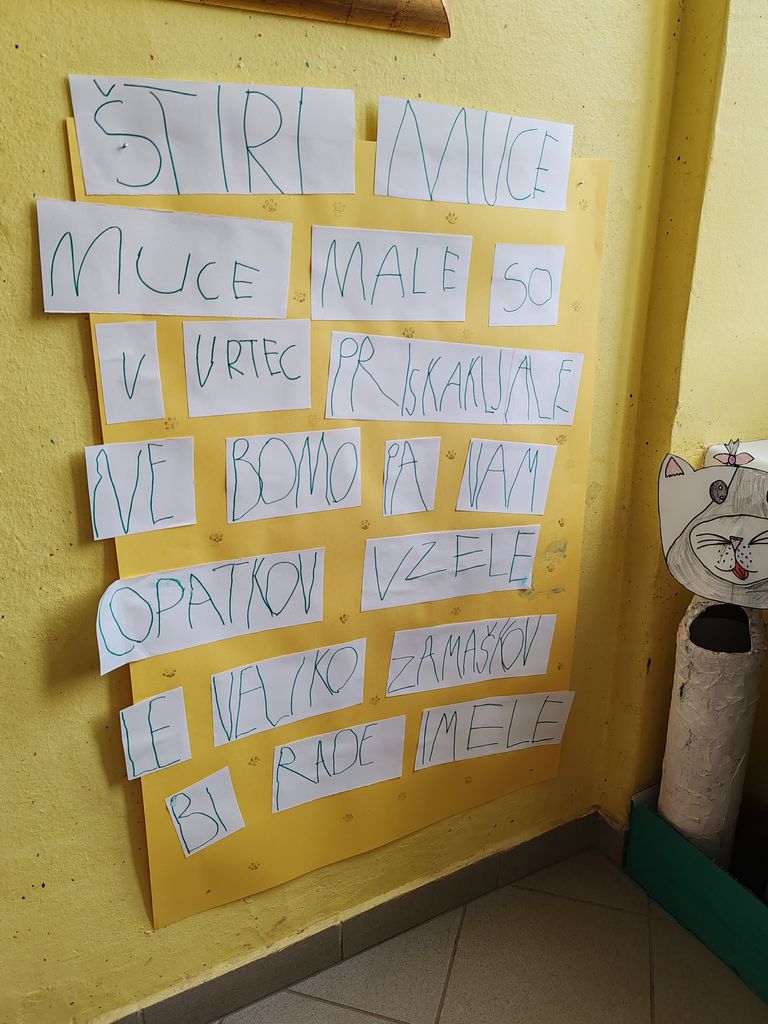 ŠTIRI MUCE
MUCE MALE SO
V VRTEC PRISKAKLJALE
NE BOMO PA VAM
COPATKOV VZELE
LE VELIKO ZAMAŠKOV
BI RADE IMELE